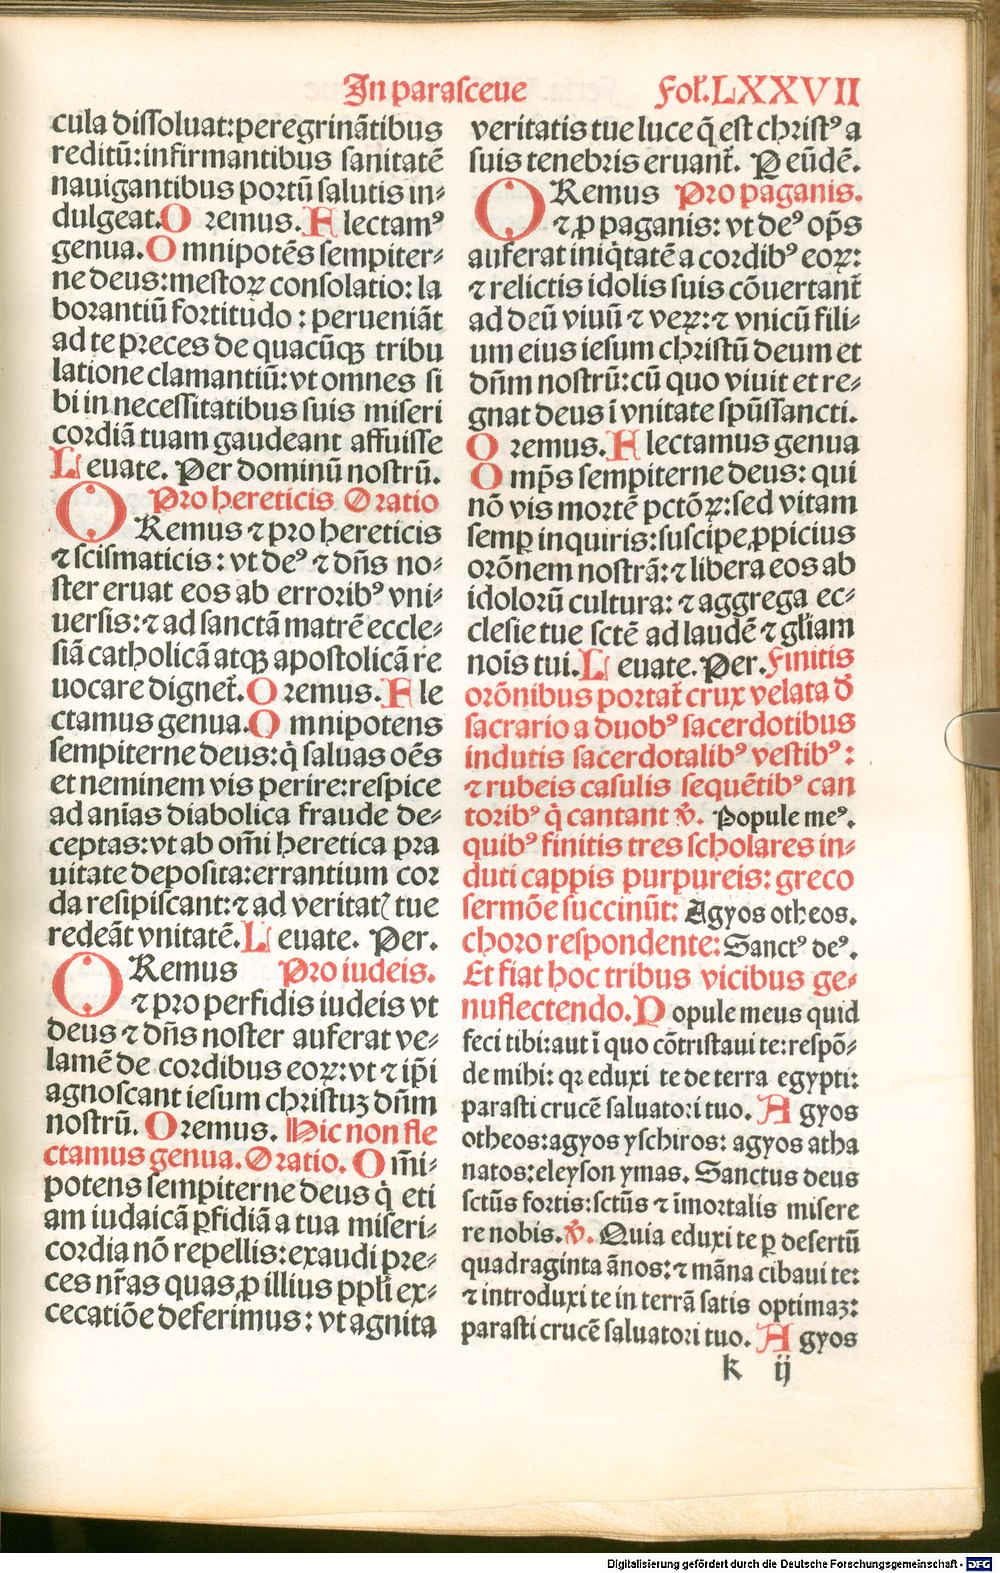 In parasceue Fol̕.LXXVII
cula dissoluat:peregrinātibus
reditū:infirmantibus sanitatē
nauigantibus portū salutis in⸗
dulgeat. Oremus. Flectamꝰ
genua. Omnipotēs sempiter⸗
ne deus:mestoꝝ consolatio: la
borantiū fortitudo : perueniāt
ad te preces de quacūqꝫ tribu
latione clamantiū:vt omnes si
bi in necessitatibus suis miseri
cordiā tuam gaudeant affuisse
Leuate. Per dominū nostrū.
Pro hereticis Oratio
ORemus ⁊ pro hereticis
⁊ scismaticis : vt deꝰ ⁊ dn̄s no⸗
ster eruat eos ab erroribꝰ vni⸗
uersis:⁊ ad sanctā matrē eccle⸗
siā catholicā atqꝫ apostolicā re
uocare dignet̄. Oremus. Fle
ctamus genua. Omnipotens
sempiterne deus:q̇ saluas oēs
et neminem vis perire:respice
ad anīas diabolica fraude de⸗
ceptas:vt ab om̄i heretica pra
uitate deposita:errantium cor
da resipiscant:⁊ ad veritatꝭ tue
redeāt vnitatē. Leuate. Per.
ORemus Pro iudeis.
⁊ pro perfidis iudeis vt
deus ⁊ dn̄s noster auferat ve⸗
lamē de cordibus eoꝝ:vt ⁊ ip̄i
agnoscant iesum christuꝫ dn̄m
nostrū. Oremus. Hic non fle
ctamus genua. Oratio. Om̄i⸗
potens sempiterne deus q̇ eti
am iudaicā ꝑfidiā a tua miseri⸗
cordia nō repellis:exaudi pre⸗
ces nr̄as quas ꝓ illius ppl̄i ex⸗
cecatiōe deferimus : vt agnita
veritatis tue luce q̄ est christꝰ a
suis tenebris eruant̄. P eūdē.
ORemus Pro paganis.
⁊ ꝓ paganis: vt deꝰ op̄s
auferat iniq̇tatē a cordibꝰ eoꝝ:
⁊ relictis idolis suis cōuertant̄
ad deū viuū ⁊ veꝝ:⁊ vnicū fili⸗
um eius iesum christū deum et
dn̄m nostrū:cū quo viuit et re⸗
gnat deus ī vnitate spūssancti.
Oremus. Flectamus genua
Omp̄s sempiterne deus: qui
nō vis mortē pctōꝝ:sed vitam
semꝑ inquiris:suscipe ꝓpicius
orōnem nostrā:⁊ libera eos ab
idolorū cultura: ⁊ aggrega ec⸗
clesie tue sctē ad laudē ⁊ gl̄iam
noīs tui. Leuate. Per. Finitis
orōnibus portat̄ crux velata d̄
sacrario a duobꝰ sacerdotibus
indutis sacerdotalibꝰ vestibꝰ :
⁊ rubeis casulis sequētibꝰ can
toribꝰ q̇ cantant ℣. Popule meꝰ.
quibꝰ finitis tres scholares in⸗
duti cappis purpureis: greco
sermōe succinūt: Agyos otheos.
choro respondente: Sanctꝰ deꝰ.
Et fiat hoc tribus vicibus ge⸗
nuflectendo. Popule meus quid
feci tibi:aut ī quo cōtristaui te:respō⸗
de mihi: qꝛ eduxi te de terra egypti:
parasti crucē saluatori tuo. Agyos
otheos:agyos yschiros: agyos atha
natos:eleyson ymas. Sanctus deus
sctūs fortis:sctūs ⁊ īmortalis misere
re nobis. ℣. Quia eduxi te ꝑ desertū
quadraginta ānos:⁊ māna cibaui te:
⁊ introduxi te in terrā satis optimaꝫ:
parasti crucē saluatori tuo. Agyos
k ij
Digitalisierung gefördert durch die Deutsche Forschungsgemeinschaft - DFG